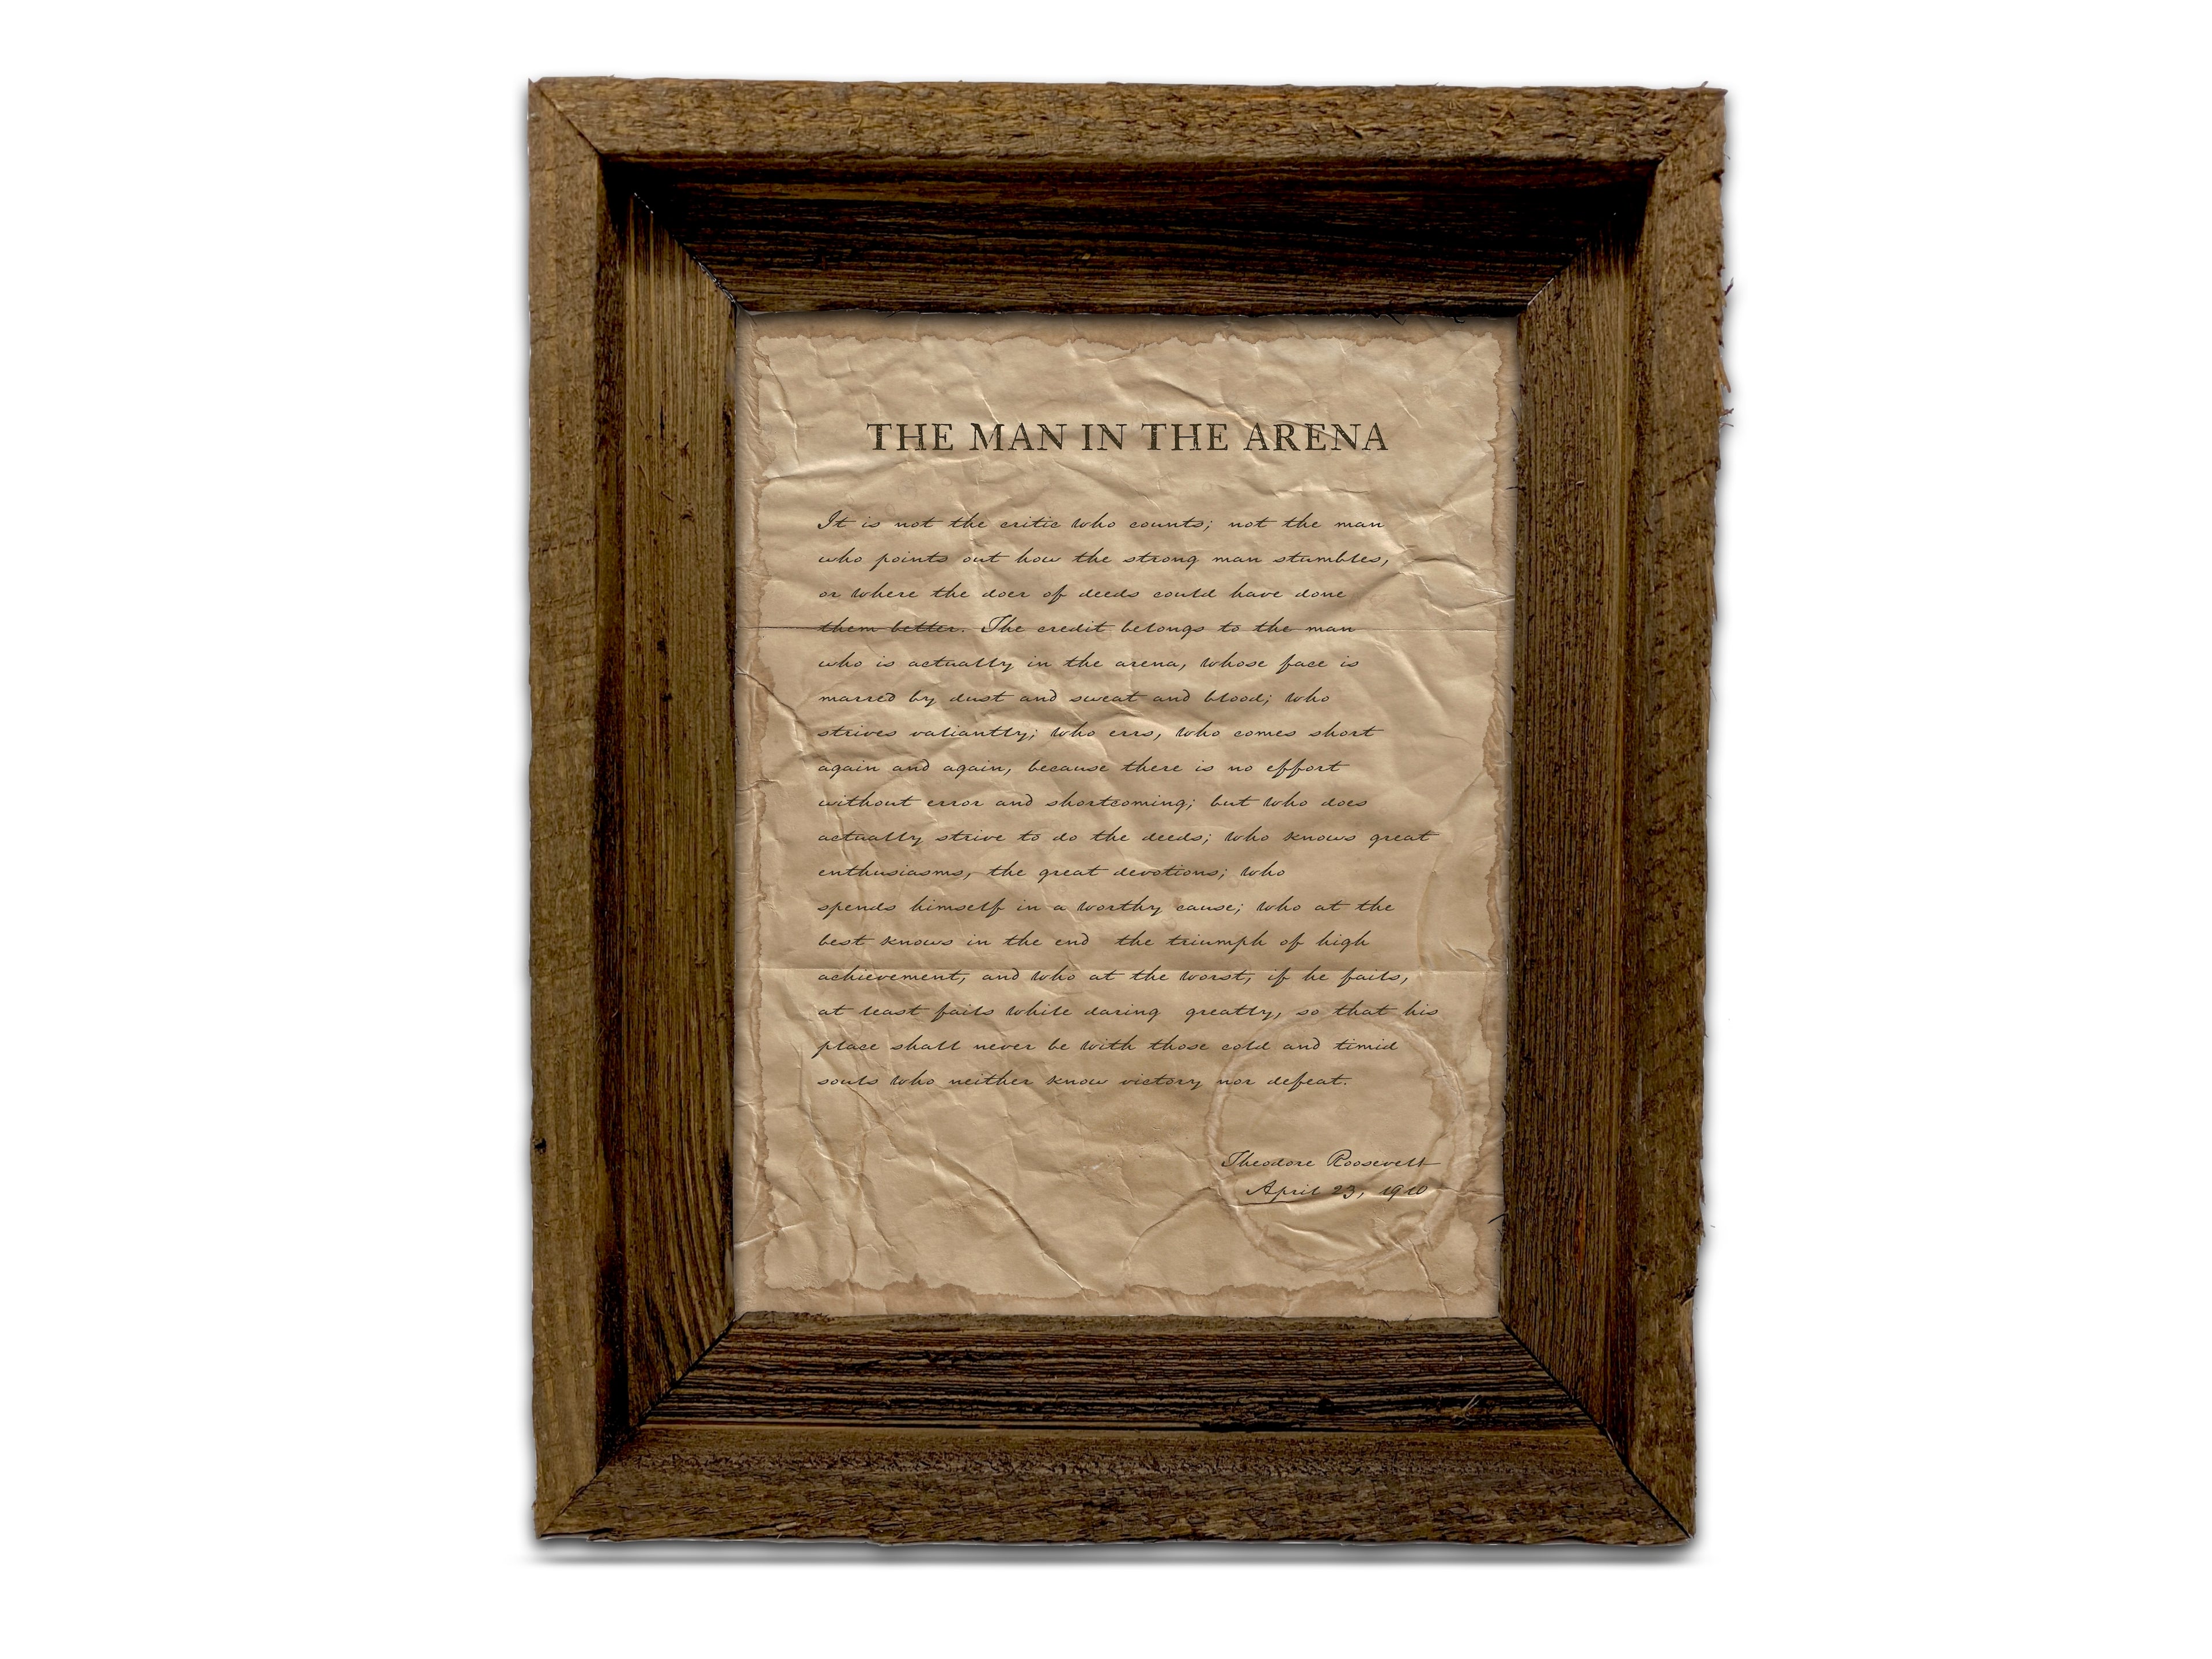 THE MAN IN THE ARENA
It is not the critic who counts; not the man
who points out how the strong man stumbles,
or where the doer of deeds could have done
them better. The credit belongs to the man
who is actually in the arena, whose face is
marred by dust and sweat and blood; who
strives valiantly; who errs, who comes short
again and again, because there is no effort
without error and shortcoming; but who does
actually strive to do the deeds; who knows great
enthusiasms, the great devotions; who
spends himself in a worthy cause; who at the
best knows in the end the triumph of high
achievement, and who at the worst, if he fails,
at least fails while daring greatly, so that his
place shall never be with those cold and timid
souls who neither know victory nor defeat.
Theodore Roosevelt
April 23, 1910